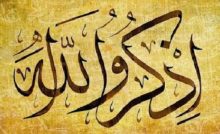 اِذْكُرُوا اللهَ